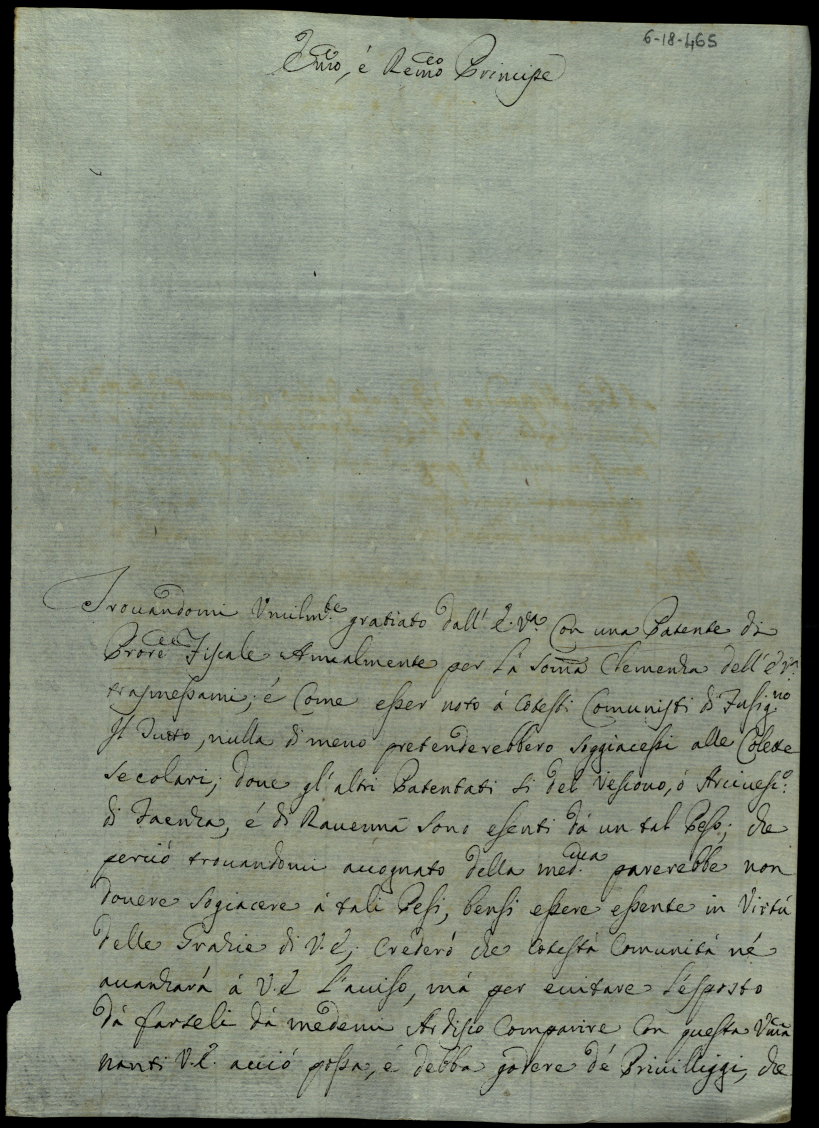 6-18-465
Emo, é Remo Principe
Trouandomi Vmilmte gratiato dall' E. Va. Con una Patente di
Prore Fiscale Annualmente per La Soma Clemenza dell' E Va.
trasmessami; é Come esser noto á Cotesti Comunisti di Fusigno
Il Tutto, nulla di meno pretenderebbero soggiacessi alle Colette
Secolari; doue gl'altri Patentati si del Vescouo, ó Arciuesco:
di Faenza, é di Rauenna sono esenti dá un tal Peso; che
perció trouandomi accognato della meda. parerebbe non
douere Sogiacere á tali Pesi, bensi essere essente in Virtú
delle Grazie di V.E; Crederó che Cotestá Comunitá né
auanzará á V.E L'auiso, má per euitare L'esposto
dá farseli dá medemi Ardisco Comparire Con questa Vmā
nanti V.E. acció possa, é debba godere dé Priuilliggi, che